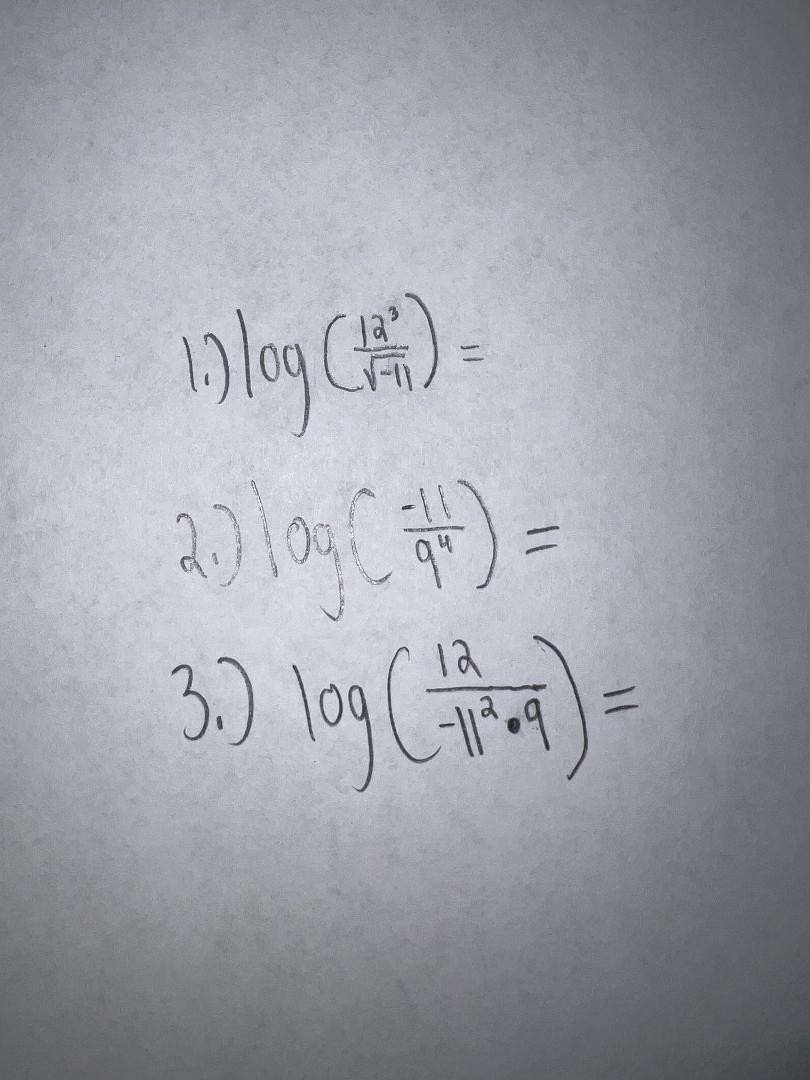 1.) log (12³/√-11) =
2.) log (-11/9⁴) =
3.) log (12/-11²•9) =